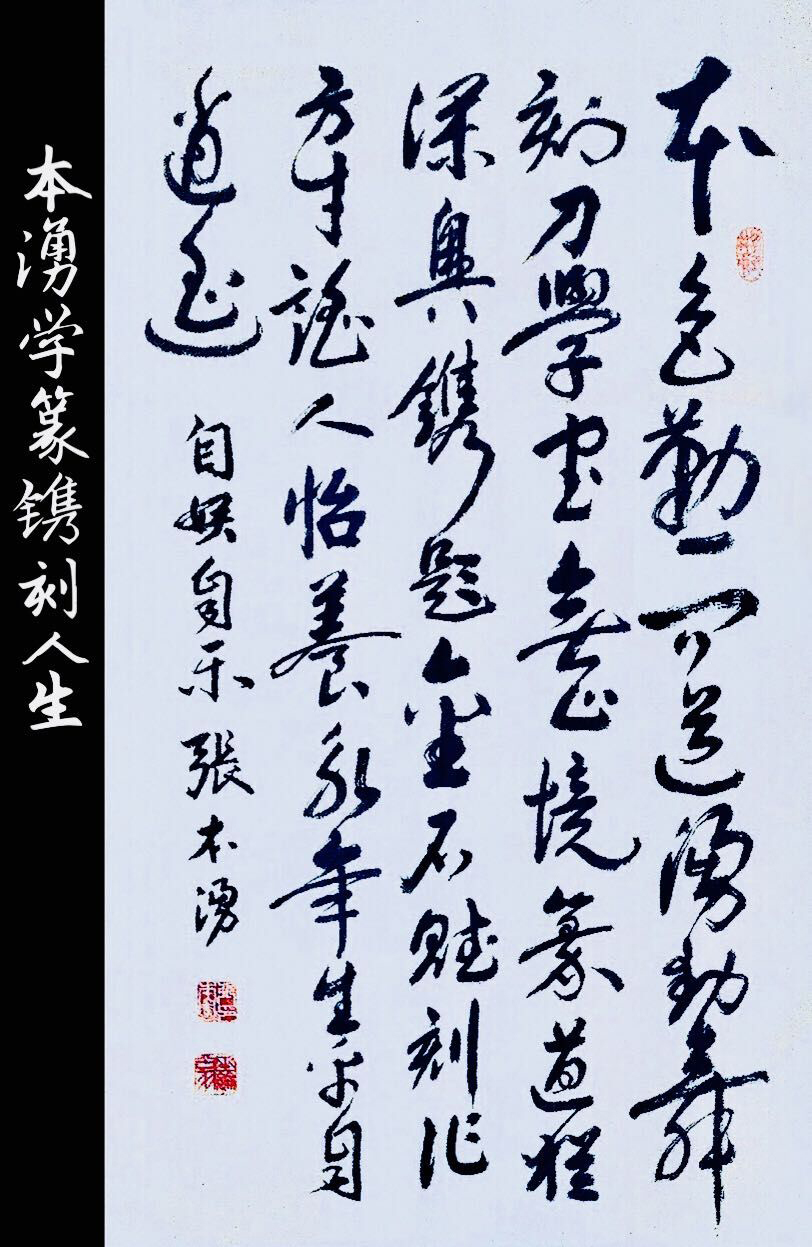 本色勤道湧動舞
刻刀學無止境篆道極
深奥鐫題金石賦刻作
方寸謡人怡養永年生平自
逍遥
自娱自乐 張本湧
本湧学篆镌刻人生